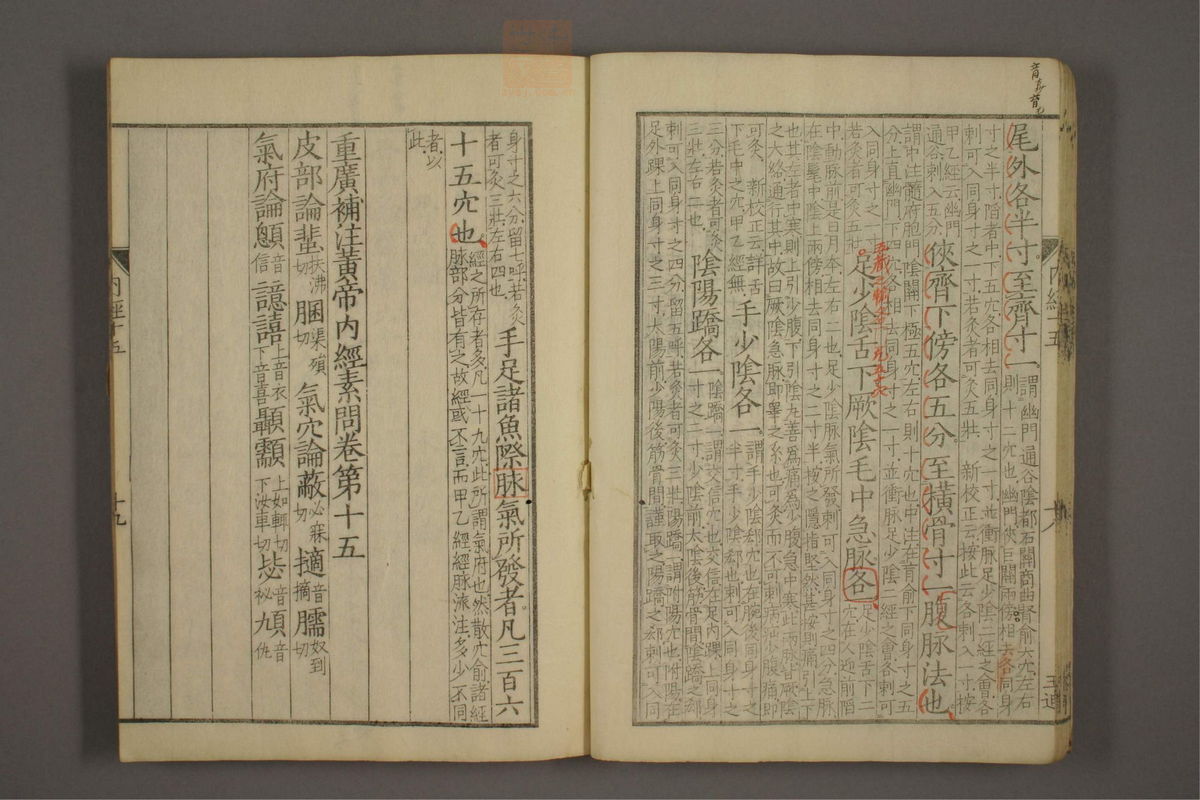 尾外各半寸至齊寸一
謂幽門通谷陰都石關商曲肓俞六穴左右
則十二穴也幽門俠巨闕兩傍相去各同身
寸之半寸陷者中下五穴各相去同身寸之一寸並衝脉足少陰二經之會各
刺可入同身寸之一寸若灸者可灸五壯 新校正云按此云各刺入一寸按
甲乙經云幽門
通谷刺入五分
俠齊下傍各五分至橫骨寸一腹脉法也
謂中注髓府胞門陰關下極五穴左右則十穴也中注在肓俞下同身寸之五
分上直幽門下四穴各相去同身寸之一寸並衝脉足少陰二經之會各刺可
入同身寸之一寸
若灸者可灸五壯
足少陰舌下厥陰毛中急脉各一
足少陰舌下二
穴在人迎前陷
中動脉前是曰月本左右二也足少陰脉氣所發刺可入同身寸之四分急脉
在陰髦中陰上兩傍相去同身寸之二寸半按之隱指堅然甚按則痛引上下
也其左者中寒則上引少腹下引陰丸善為痛為少腹急中寒此兩脉皆厥陰
之大絡通行其中故曰厥陰急脉即睾之系也可灸而不可刺病疝少腹痛即
可灸 新校正云詳舌
下毛中之穴甲乙經無
手少陰各一
謂手少陰郄穴也在腕後同身寸之
半寸手少陰郄也刺可入同身寸之
三分若灸者可灸
三壯左右二也
陰陽蹻各一
陰蹻一謂交信穴也交信在足內踝上同身
寸之二寸少陰前太陰後筋骨間陰蹻之郄
刺可入同身寸之四分留五呼若灸者可灸三壯陽蹻一謂附陽穴也附陽在
足外踝上同身寸之三寸太陽前少陽後筋骨間謹取之陽蹻之郄刺可入同
內經十五
十八
身寸之六分留七呼若灸
者可灸三壯左右四也
手足諸魚際脉氣所發者凡三百六
十五穴也
經之所存者多凡一十九穴此所謂氣府也然散穴俞諸經
脉部分皆有之故經或不言而甲乙經經脉流注多少不同
者以
此
重廣補注黃帝内經素問卷第十五
皮部論䖬扶沸切䐃渠殞切 氣穴論蔽必寐切擿音摘臑奴到切
氣府論顖音信譩譆上音衣下音喜顳顬上如輒切下汝車切毖音祕頄音仇
内經十五
十九